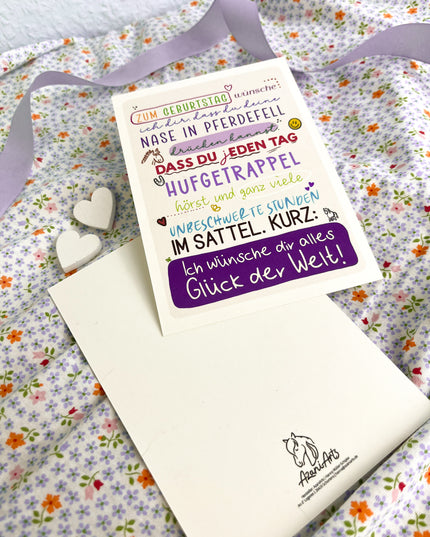 ZUM GEBURTSTAG wünsche
ich dir, dass du deine
NASE IN PFERDEFELL
drücken kannst.
DASS DU jEDEN TAG
HUFGETRAPPEL
hörst und ganz viele
UNBESCHWERTE STUNDEN
IM SATTEL. KURZ:
Ich wünsche dir alles
Glück der Welt!
AzaniArts